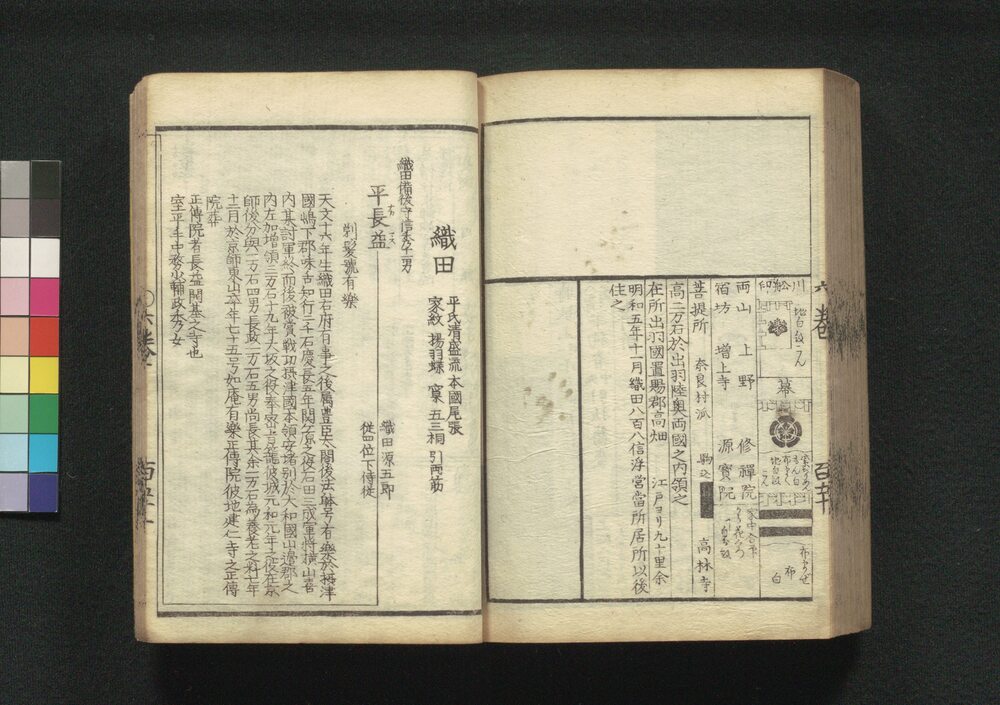 六巻
百五十
川舩印
地白紋こん
幕
布
白
両山 上野 修禅院
宿坊 増上寺 源寳院
菩提所 奈良村派 駒込 高林寺
高二万石於出羽陸奥両國之内領之
在所出羽國置賜郡高畑 江戸ヨリ九十里余
明和五年十一月織田八百八信浮営當所居所以後
住之
織田
平氏清盛流 本國尾張
家紋 揚羽蝶 窠 五三桐 引両筋
織田備後守信秀十一男
平長益
織田源五郎
従四位下侍従
剃髪號有樂
天文十六年生織田右府有事之後属豊臣太閤後法躰号有樂於摂津
國嶋下郡味舌知行二千石慶長五年関ケ原之役石田三成軍将横山喜
内某討軍終而後被賞戦功摂津國本領安堵別於大和國山邊郡之
内左加増領三万石十九年大坂之役奉密旨籠彼城元和元年之役在京
師後分與一万石四男長政一万石五男尚長其余一万石為養老之料七年
十二月於京師東山卒年七十五号如庵有樂正傳院彼地建仁寺之正傳
院葬
正傳院者長益開基之寺也
室平手中務少輔政秀女